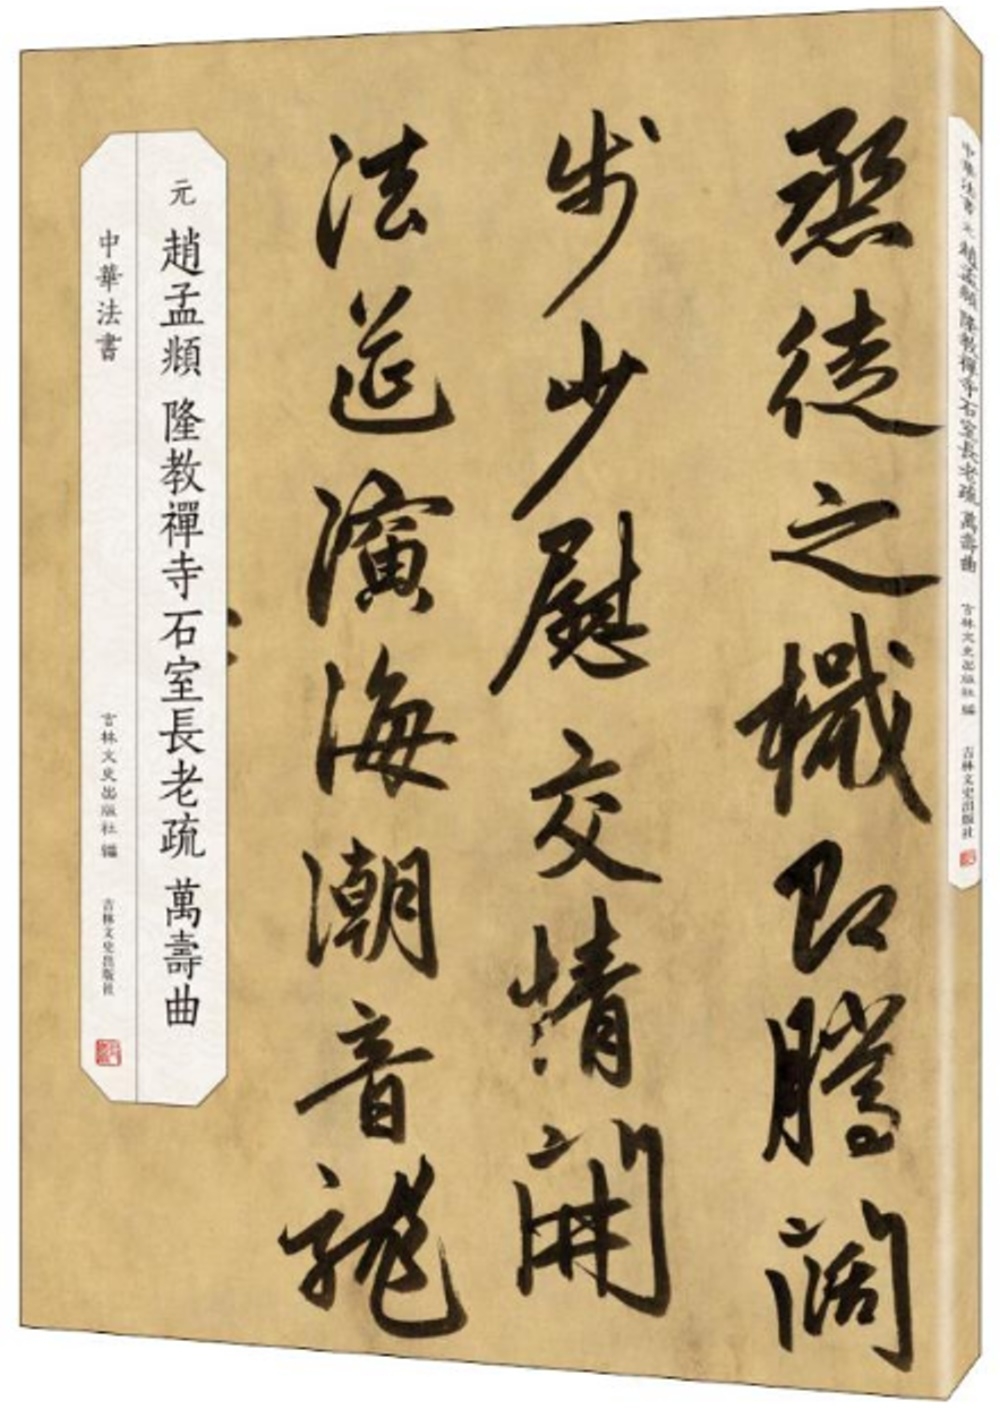 烝徒之檝即騰闊
步少慰交情開
法筵演海潮音龍
元 趙孟頫 隆教禪寺石室長老疏 萬壽曲
中華法書 吉林文史出版社 編 吉林文史出版社
中華法書 元 趙孟頫 隆教禪寺石室長老疏 萬壽曲 吉林文史出版社 編 吉林文史出版社